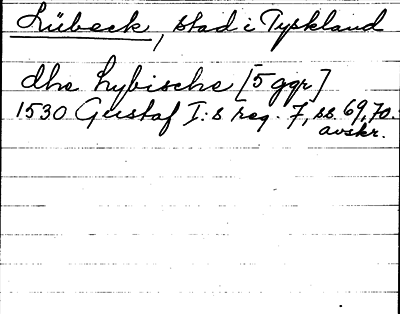 Lübeck, stad i Tyskland
dhe Lybische [5 ggr]
1530 Gustaf I:s reg. 7, ss. 69, 70.
avskr.